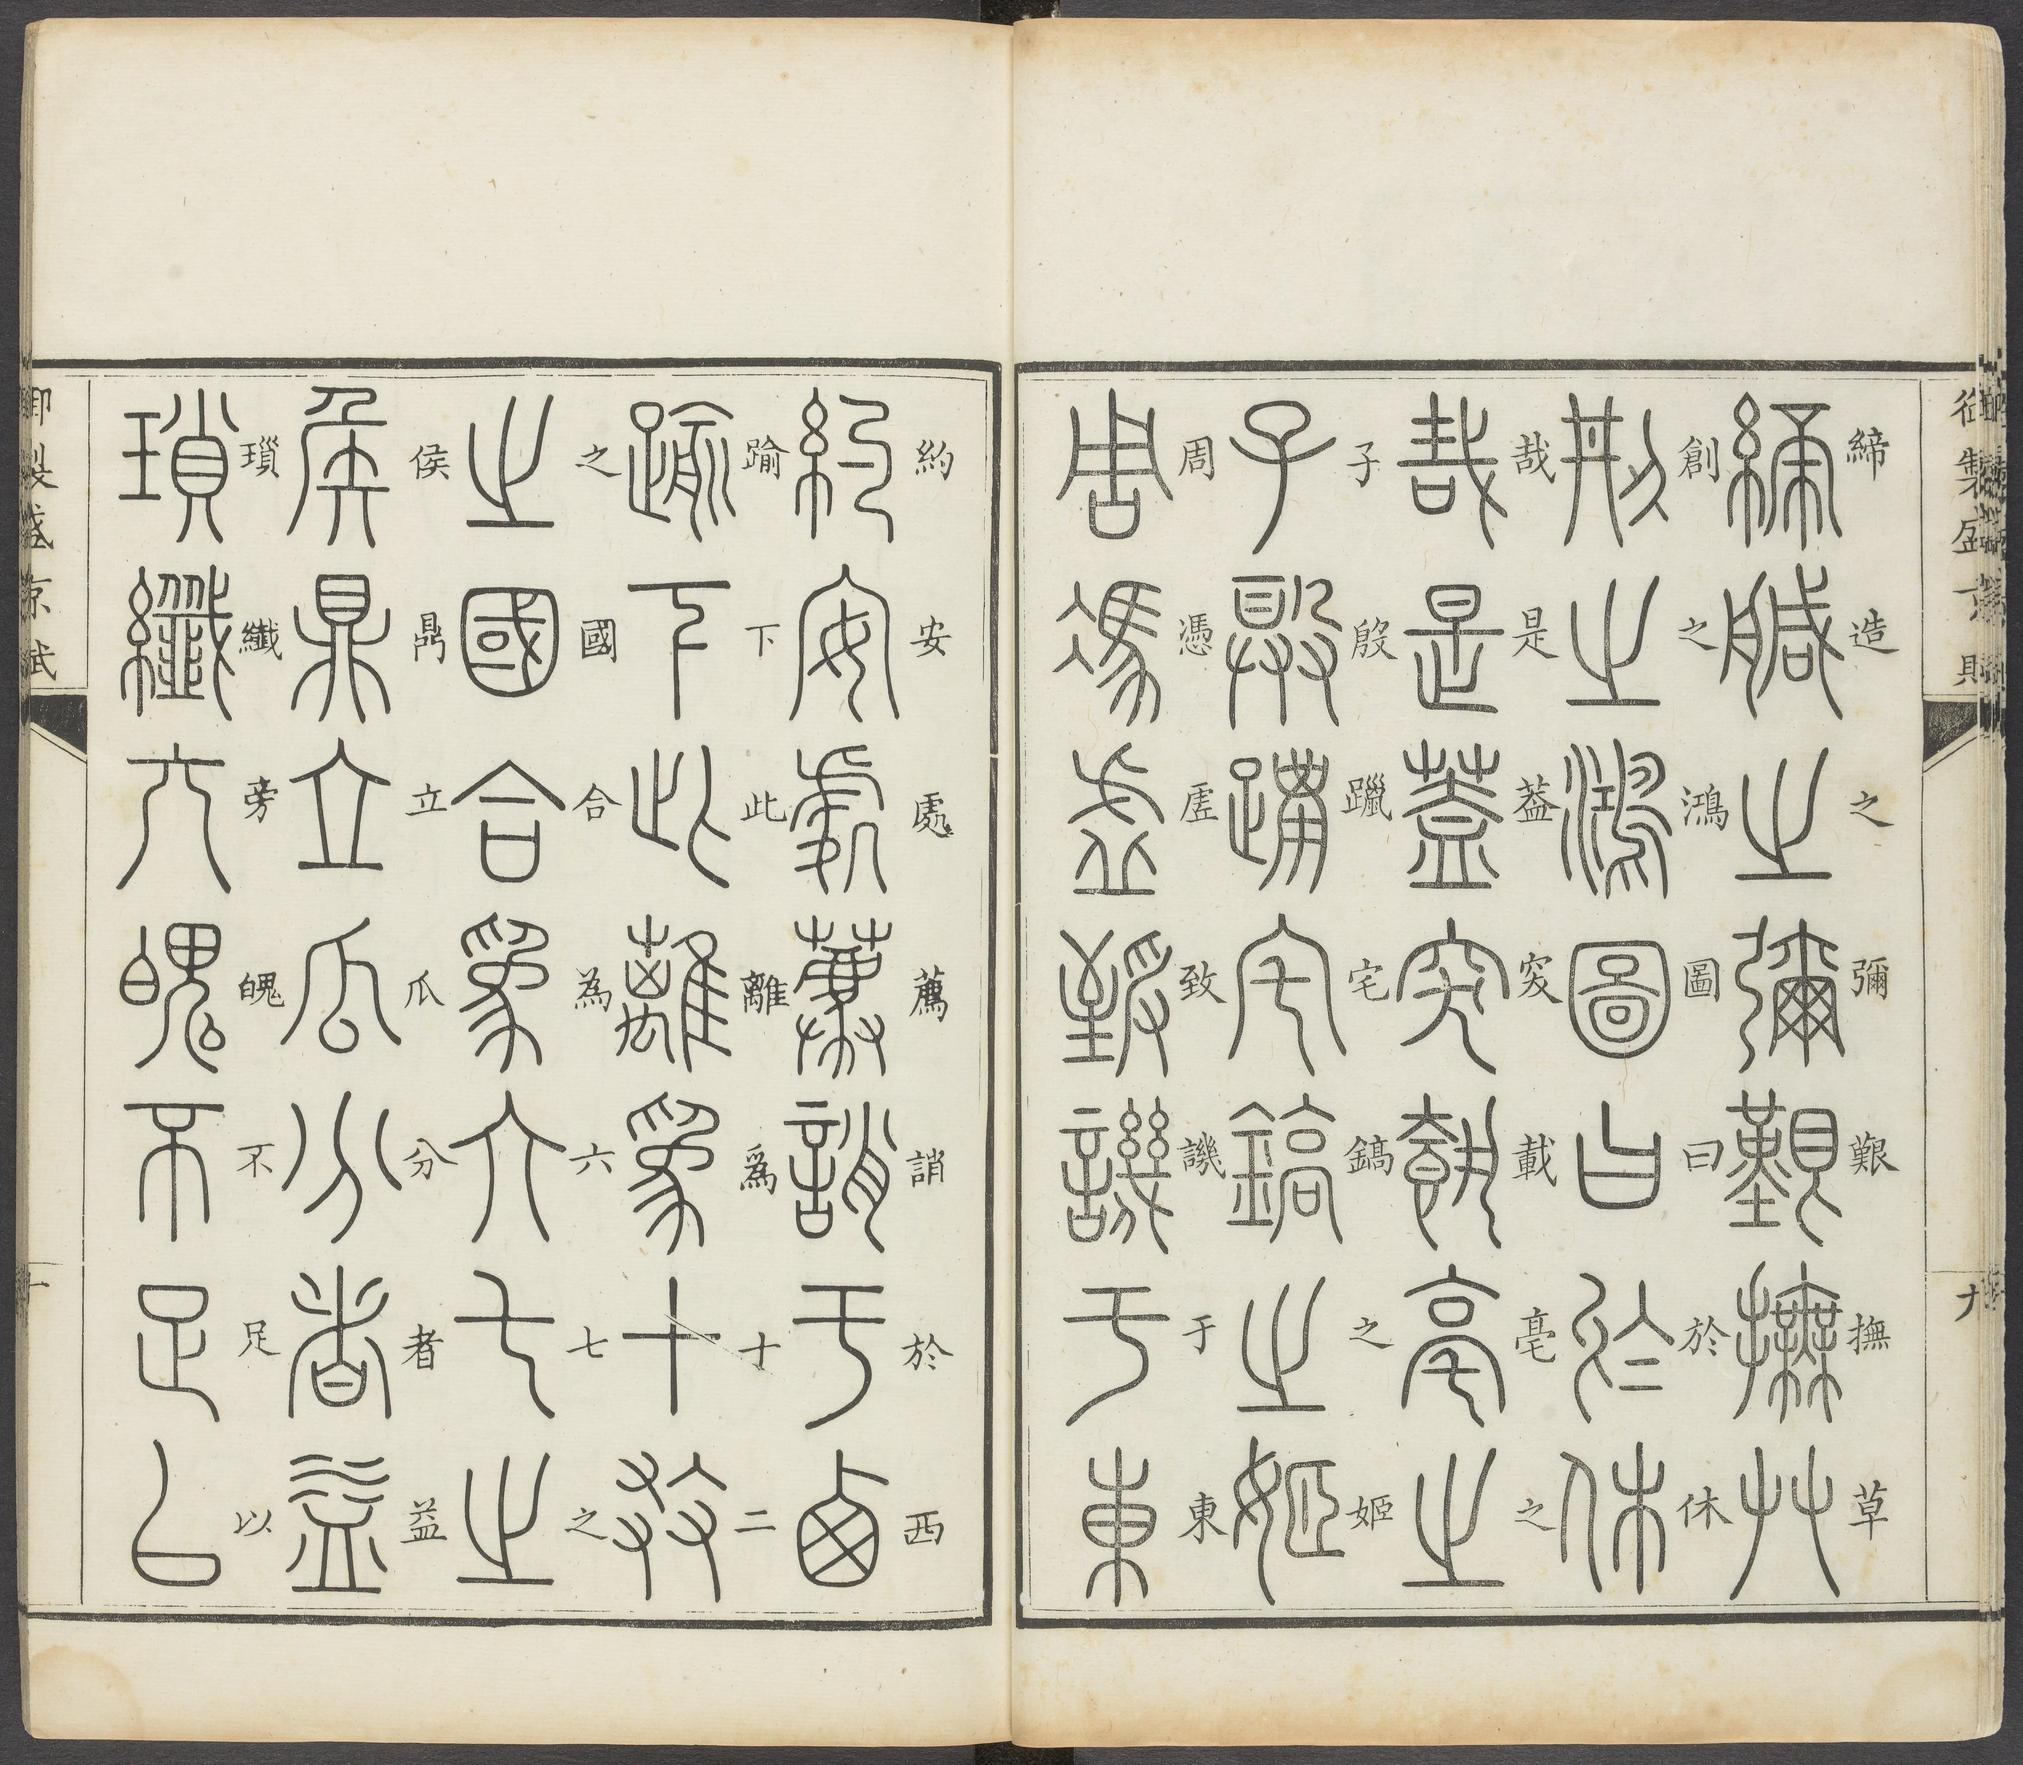 御製盛京賦
九
締造之彌艱撫草
創之鴻圖曰於休
哉是葢突載亳之
子殷躐宅鎬之姬
周憑虗致譏于東
約安處薦誚於西
踰下此離爲十二
之國合為六七之
侯鼎立瓜分者益
瑣纖旁魄不足以
御製盛京賦